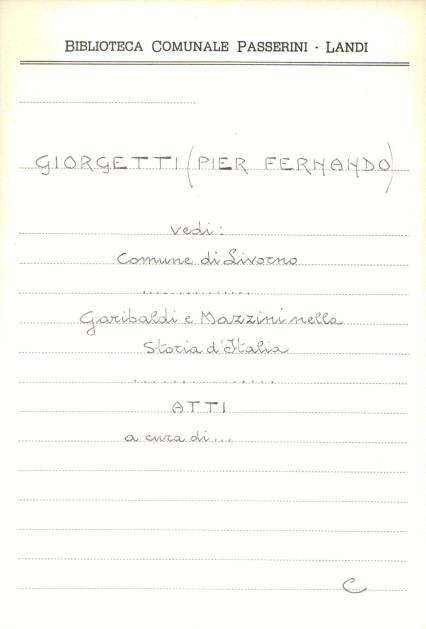 BIBLIOTECA COMUNALE PASSERINI - LANDI
GIORGETTI (PIER FERNANDO)
vedi:
Comune di Livorno
.............
Garibaldi e Mazzini nella
Storia d'Italia
................
ATTI
a cura di...
C